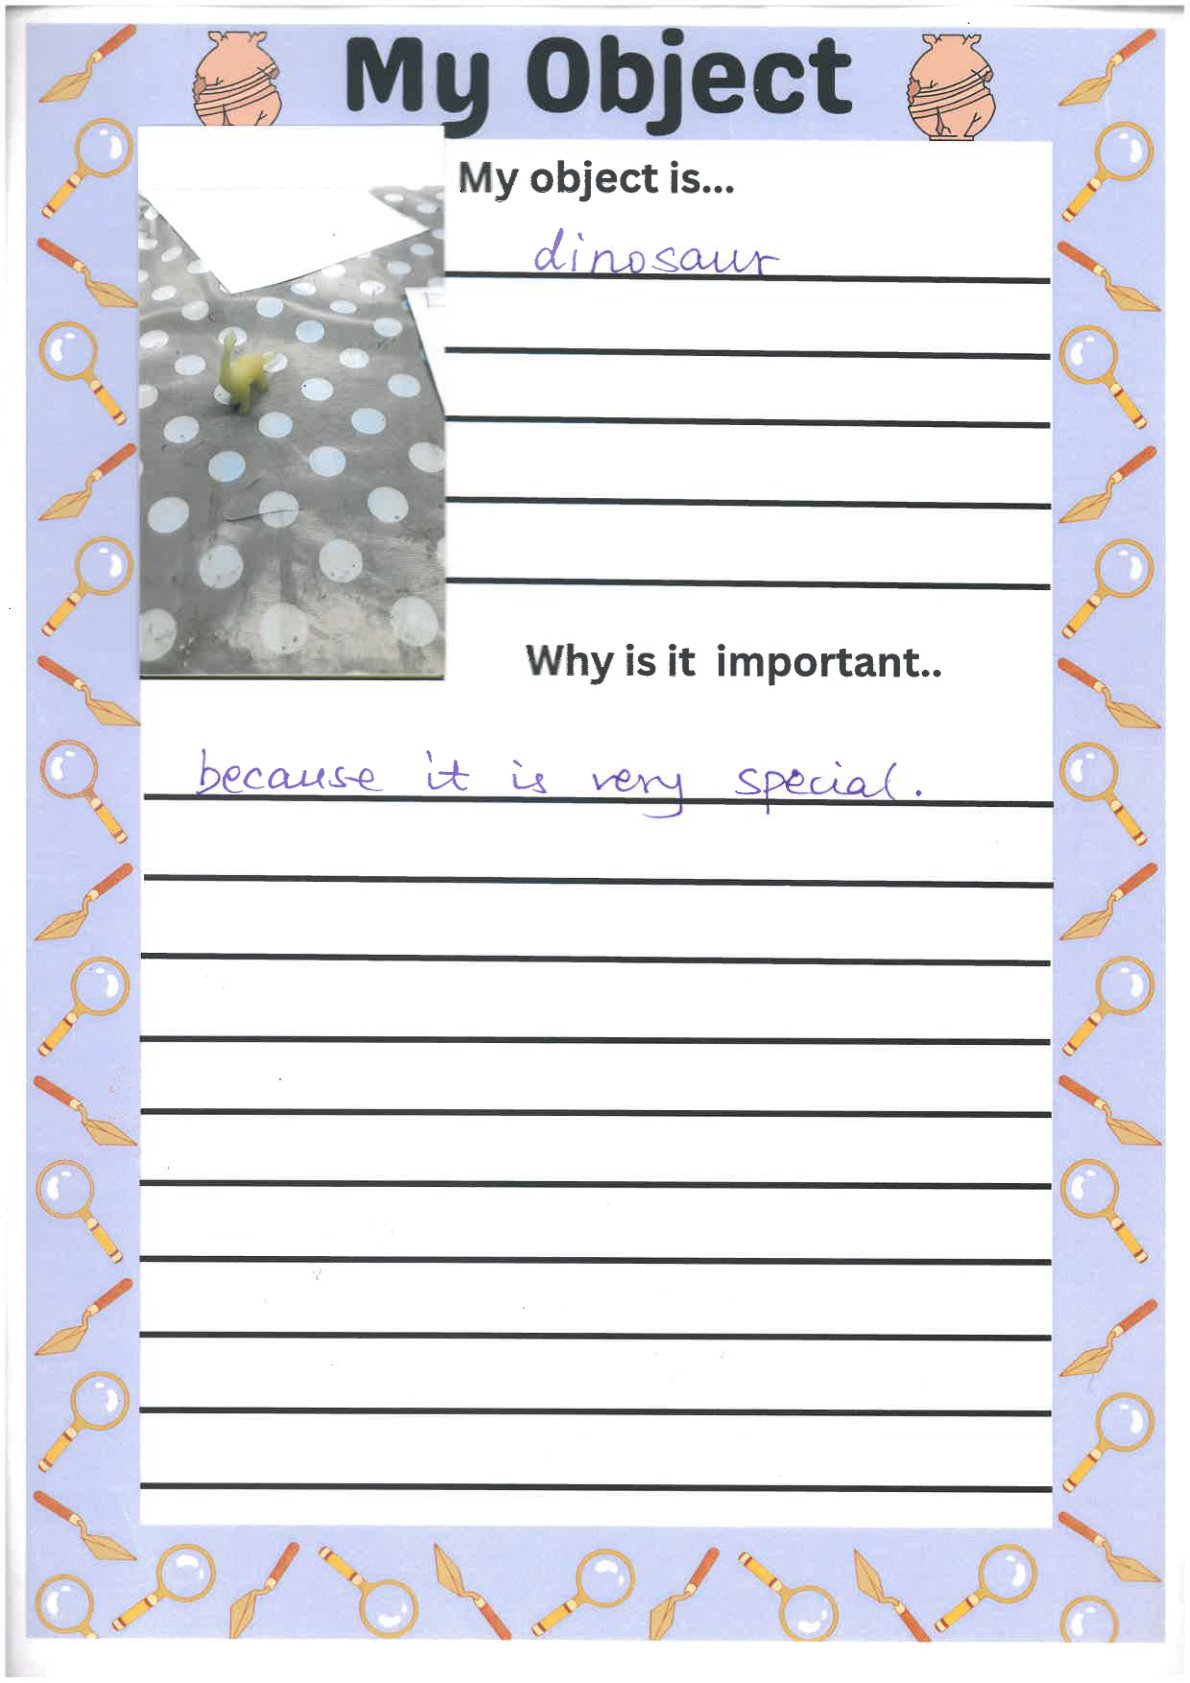 My Object
My object is...
dinosaur
Why is it important..
because it is very special.